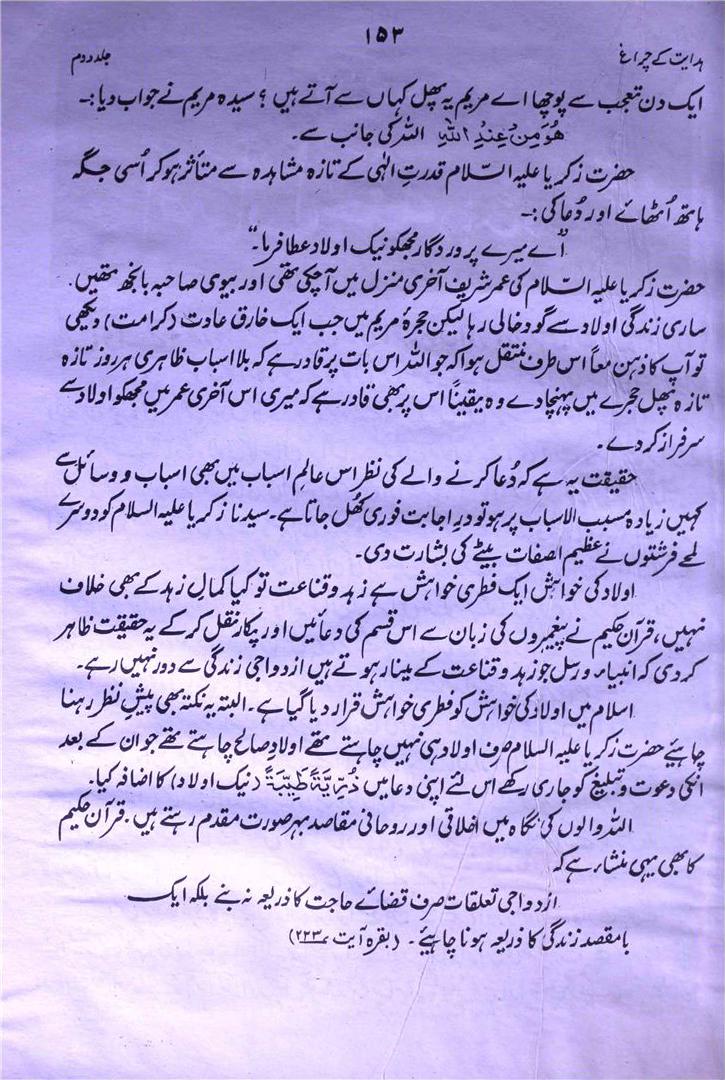 ۱۵۳
ہدایت کے چراغ
جلد دوم
ایک دن تعجب سے پوچھا اے مریم یہ پھل کہاں سے آتے ہیں ؟ سیدہ مریم نے جواب دیا :۔
هُوَ مِنْ عِنْدِ اللّٰهِ اللہ کی جانب سے ۔
حضرت زکریا علیہ السّلام قدرتِ الٰہی کے تازہ مشاہدہ سے متأثر ہو کر اُسی جگہ
ہاتھ اُٹھائے اور دُعا کی :۔
"اے میرے پروردگار مجھکو نیک اولاد عطا فرما ۔"
حضرت زکریا علیہ السّلام کی عمر شریف آخری منزل میں آچکی تھی اور بیوی صاحبہ بانجھ تھیں .
ساری زندگی اولاد سے گود خالی رہا لیکن حجرۂ مریم میں جب ایک خارقِ عادت (کرامت) دیکھی
تو آپ کا ذہن معاً اس طرف منتقل ہوا کہ جو اللہ اس بات پر قادر ہے کہ بلا اسباب ظاہری ہر روز تازہ
تازہ پھل حجرے میں پہنچا دے وہ یقیناً اس پر بھی قادر ہے کہ میری اس آخری عمر میں مجھکو اولاد سے
سرفراز کر دے ۔
حقیقت یہ ہے کہ دُعا کرنے والے کی نظر اس عالمِ اسباب میں بھی اسباب و وسائل سے
کہیں زیادہ مسبب الاسباب پر ہو تو درِ اجابت فوری کھُل جاتا ہے ۔ سیدنا زکریا علیہ السلام کو دوسرے
لمحے فرشتوں نے عظیم الصفات بیٹے کی بشارت دی ۔
اولاد کی خواہش ایک فطری خواہش ہے زہد و قناعت تو کیا کمالِ زہد کے بھی خلاف
نہیں، قرآن حکیم نے پیغمبروں کی زبان سے اس قسم کی دعائیں اور پکار نقل کر کے یہ حقیقت ظاہر
کر دی کہ انبیاء و رسل جو زہد و قناعت کے مینار ہوتے ہیں ازدواجی زندگی سے دور نہیں رہے ۔
اسلام میں اولاد کی خواہش کو فطری خواہش قرار دیا گیا ہے ۔ البتہ یہ نکتہ بھی پیشِ نظر رہنا
چاہیئے حضرت زکریا علیہ السلام صرف اولاد ہی نہیں چاہتے تھے اولادِ صالح چاہتے تھے جو ان کے بعد
انکی دعوت و تبلیغ کو جاری رکھے اس لئے اپنی دعا میں ذُرِّيَّةً طَيِّبَةً (نیک اولاد) کا اضافہ کیا۔
اللہ والوں کی نگاہ میں اخلاقی اور روحانی مقاصد بہر صورت مقدم رہتے ہیں ۔ قرآن حکیم
کا بھی یہی منشاء ہے کہ
ازدواجی تعلقات صرف قضائے حاجت کا ذریعہ نہ بنے بلکہ ایک
بامقصد زندگی کا ذریعہ ہونا چاہیئے ۔ (بقرہ آیت ۲۲۳)